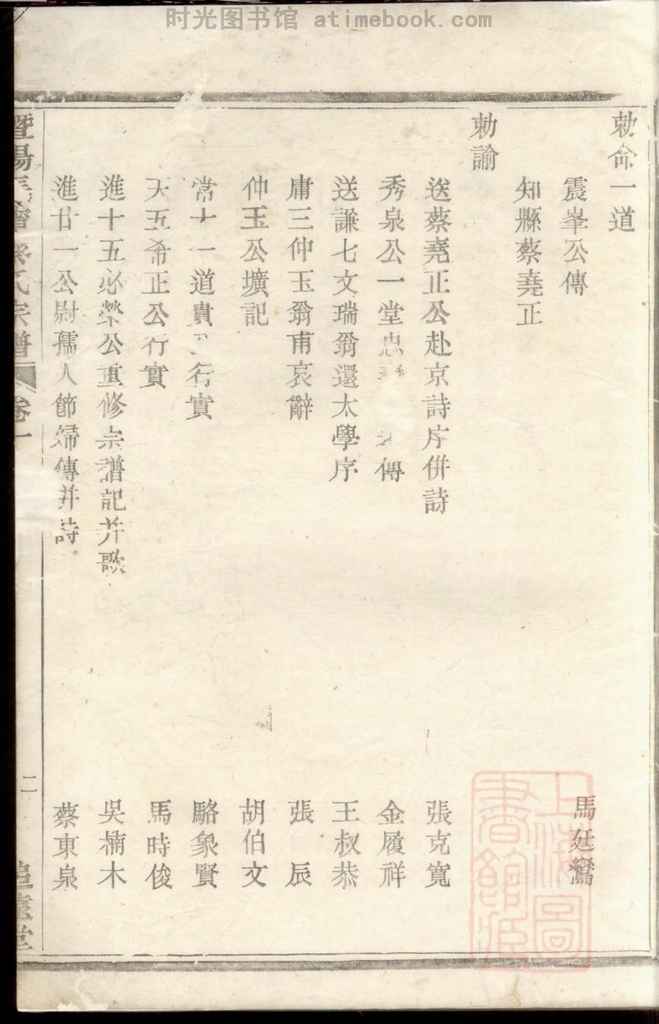 时光图书馆 atimebook.com
勅命一道
震峯公傳 馬廷鸞
知縣蔡堯正
勅諭
送蔡堯正公赴京詩序併詩 張克寬
秀泉公一堂忠 傳 金履祥
送謙七文瑞翁還太學序 王叔恭
庸三仲玉翁甫哀辭 張辰
仲玉公壙記 胡伯文
常十一道貴 行實 駱象賢
天五希正公行實 馬時俊
進十五必榮公重修宗譜記并歌 吳楠木
進廿一公尉孺人節婦傳并詩 蔡東泉
暨陽 蔡氏宗譜 卷一 二 追遠堂
上海圖書館藏